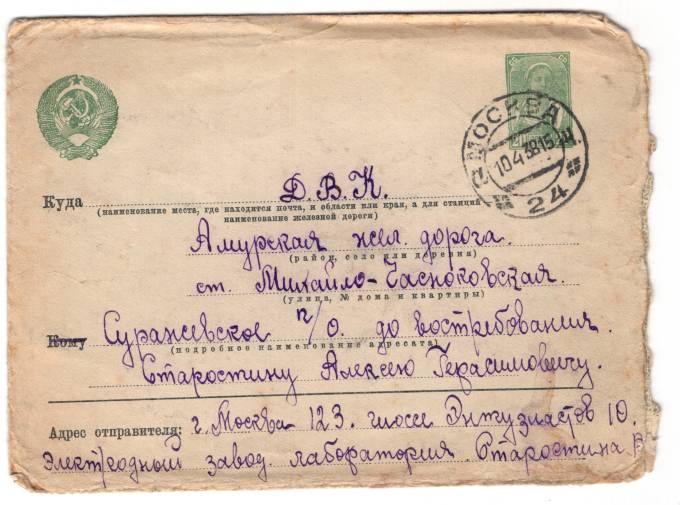 20
МОСКВА
10.4.38.15
24
Куда Д.В.К.
(наименование места, где находится почта, и области или края, а для станций
наименование железной дороги)
Амурская жел. дорога.
(район, село или деревня)
ст. Михайло-Часноковская.
(улица, № дома и квартиры)
Кому Суражевское п/о. до востребования.
(подробное наименование адресата)
Старостину Алексею Герасимовичу.
Адрес отправителя: г. Москва 123. шоссе Энтузиастов 10.
Электродный завод. лаборатория Старостина